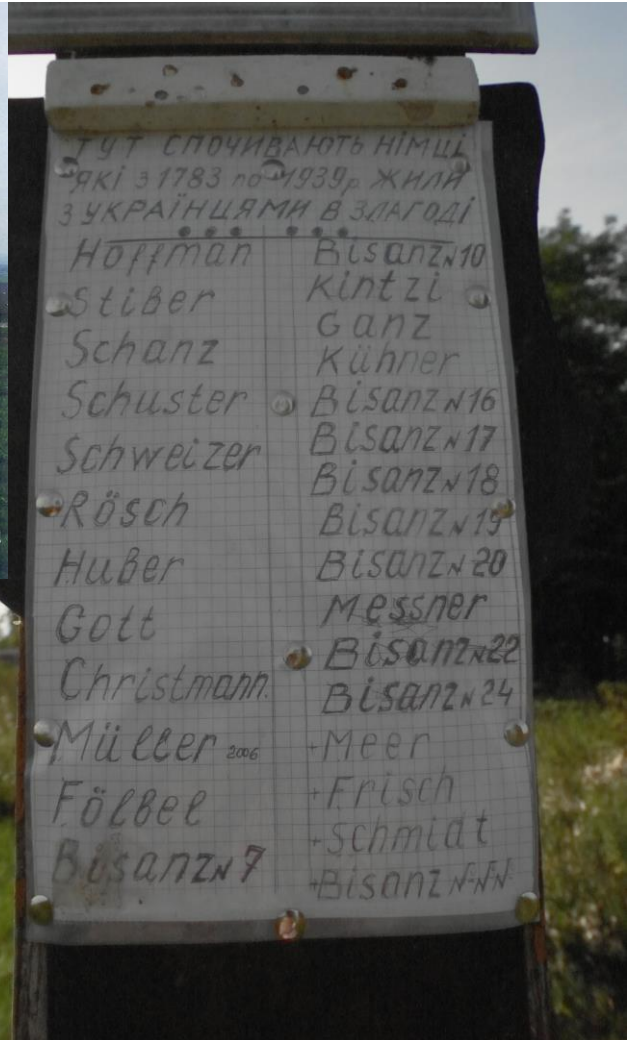 ТУТ СПОЧИВАЮТЬ НІМЦІ
ЯКІ З 1783 по 1939р. ЖИЛИ
З УКРАЇНЦЯМИ В ЗЛАГОДІ
Hoffman
Stiber
Schanz
Schuster
Schweizer
Rösch
Huber
Gott
Christmann.
Müller 2006
Fölbel
Bisanz N 7
Bisanz N 10
Kintzi
Ganz
Kühner
Bisanz N 16
Bisanz N 17
Bisanz N 18
Bisanz N 19
Bisanz N 20
Messner
Bisanz N 22
Bisanz N 24
+Meer
+Frisch
+Schmidt
+Bisanz N-N-N-